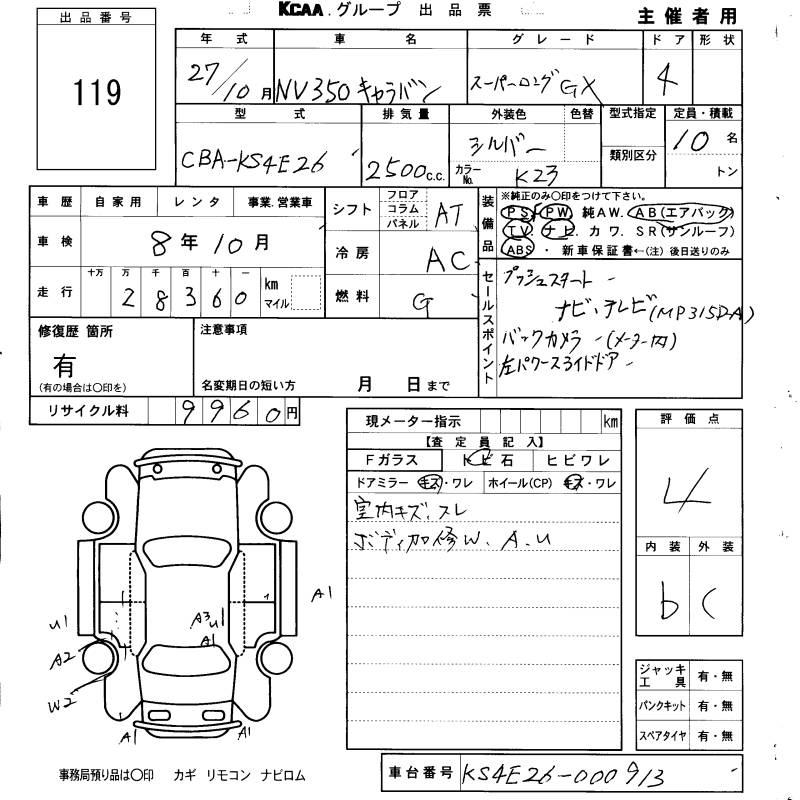 KCAA.グループ 出品票
主催者用
出品番号
119
年式 車名 グレード ドア 形状
27/10月 NV350キャラバン スーパーロングGX 4
型式 排気量 外装色 色替 型式指定 定員・積載
CBA-KS4E26 2500c.c. シルバー 類別区分 10名
カラーNo. K23 トン
車歴 自家用 レンタ 事業.営業車
車検 8年10月
走行 十万 万 千 百 十 一 km マイル
28360
シフト フロア コラム パネル AT
冷房 AC
燃料 G
装備品 ※純正のみ〇印をつけて下さい。
PS PW 純AW. AB(エアバック)
TV ナビ. カワ. SR(サンルーフ)
ABS ・ 新車保証書←(注) 後日送りのみ
セールスポイント
プッシュスタート
ナビ、テレビ(MP315D-A)
バックカメラ (メーター内)
左パワースライドドア
修復歴 箇所
有
(有の場合は〇印を)
注意事項
名変期日の短い方 月 日まで
リサイクル料 9960円
現メーター指示 km
【査定員記入】
Fガラス トビ石 ヒビワレ
ドアミラー キズ・ワレ ホイール(CP) キズ・ワレ
室内キズ、スレ
ボディ加修W、A、U
評価点
4
内装 外装
b C
U1 A2 W2 A1 A3 U1 A1 A1 A1
ジャッキ工具 有・無
パンクキット 有・無
スペアタイヤ 有・無
事務局預り品は〇印 カギ リモコン ナビロム
車台番号 KS4E26-000913